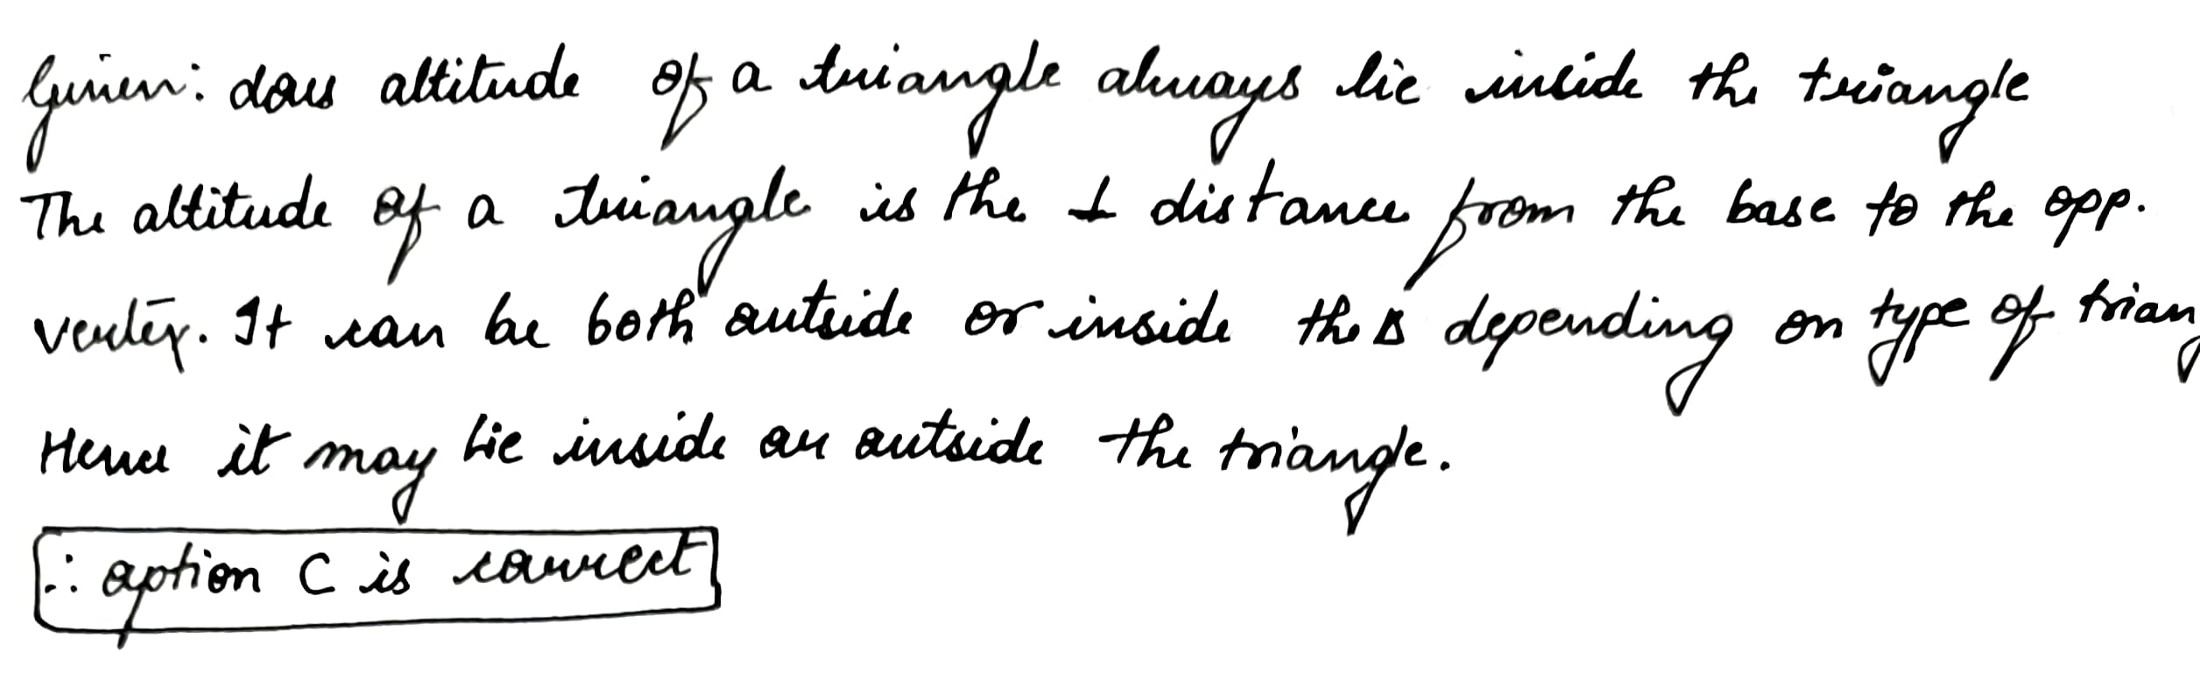 Given: does altitude of a triangle always lie inside the triangle
The altitude of a triangle is the ⊥ distance from the base to the opp.
vertex. It can be both outside or inside the Δ depending on type of triang
Hence it may lie inside or outside the triangle.
∴ option C is correct